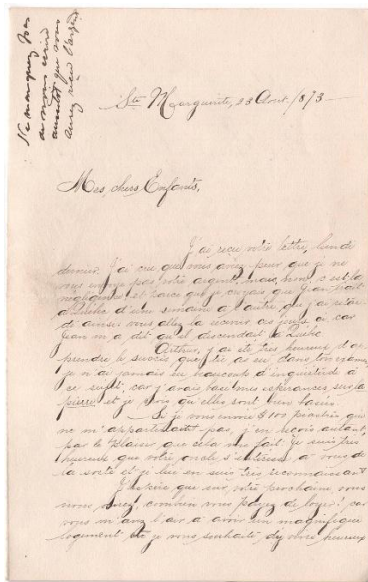 Ne manquez pas
de nous écrire
aussitôt que vous
aurez reçu l'argent
Ste Marguerite, 23 Aout /873
Mes chers Enfants,
J'ai reçu votre lettre, lundi
dernier. J'ai cru que vous aviez peur que je ne
vous envoye pas votre argent, mais, non c'est la
négligence et parce que je croyais que Jean irait
à Québec d'une semaine à l'autre que j'ai retar-
dé ainsi vous allez la recevoir ces jours ci car
Jean m'a dit qu'il descendait à Québec
Arthur, j'ai été très heureux d'ap-
prendre le succès que tu as eu dans ton examen
je n'ai jamais eu beaucoup d'inquiétude à
ce sujet, car j'avais basé mes espérances, sur la
pierre et je vois qu'elles sont bien basées.
Si je vous envoie $100 piastres que
ne m'appartenait pas, j'en reçois autant,
par le plaisir que cela me fait. Je suis très
heureuse que votre oncle s'intéresse à vous de
la sorte et je lui en suis très reconnaissant
J'espère que sur votre prochaine, vous
nous direz, combien vous payez de loyer, car
vous m'avez l'air à avoir un magnifique
logement et je vous souhaite d'y vivre heureux